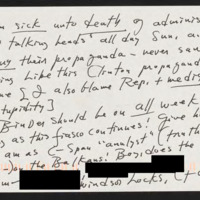 sick unto death of adminis
talking heads all day Sun, a
their propaganda - never
ing like this Clinton propagand
e [I also blame Rep. + med
tupidity]
Binder should be on all week
as this fiasco continues! Give
am as C-Span "analyst" for th
on the Balkans! Boy, does the
m- Windsor Locks, CT